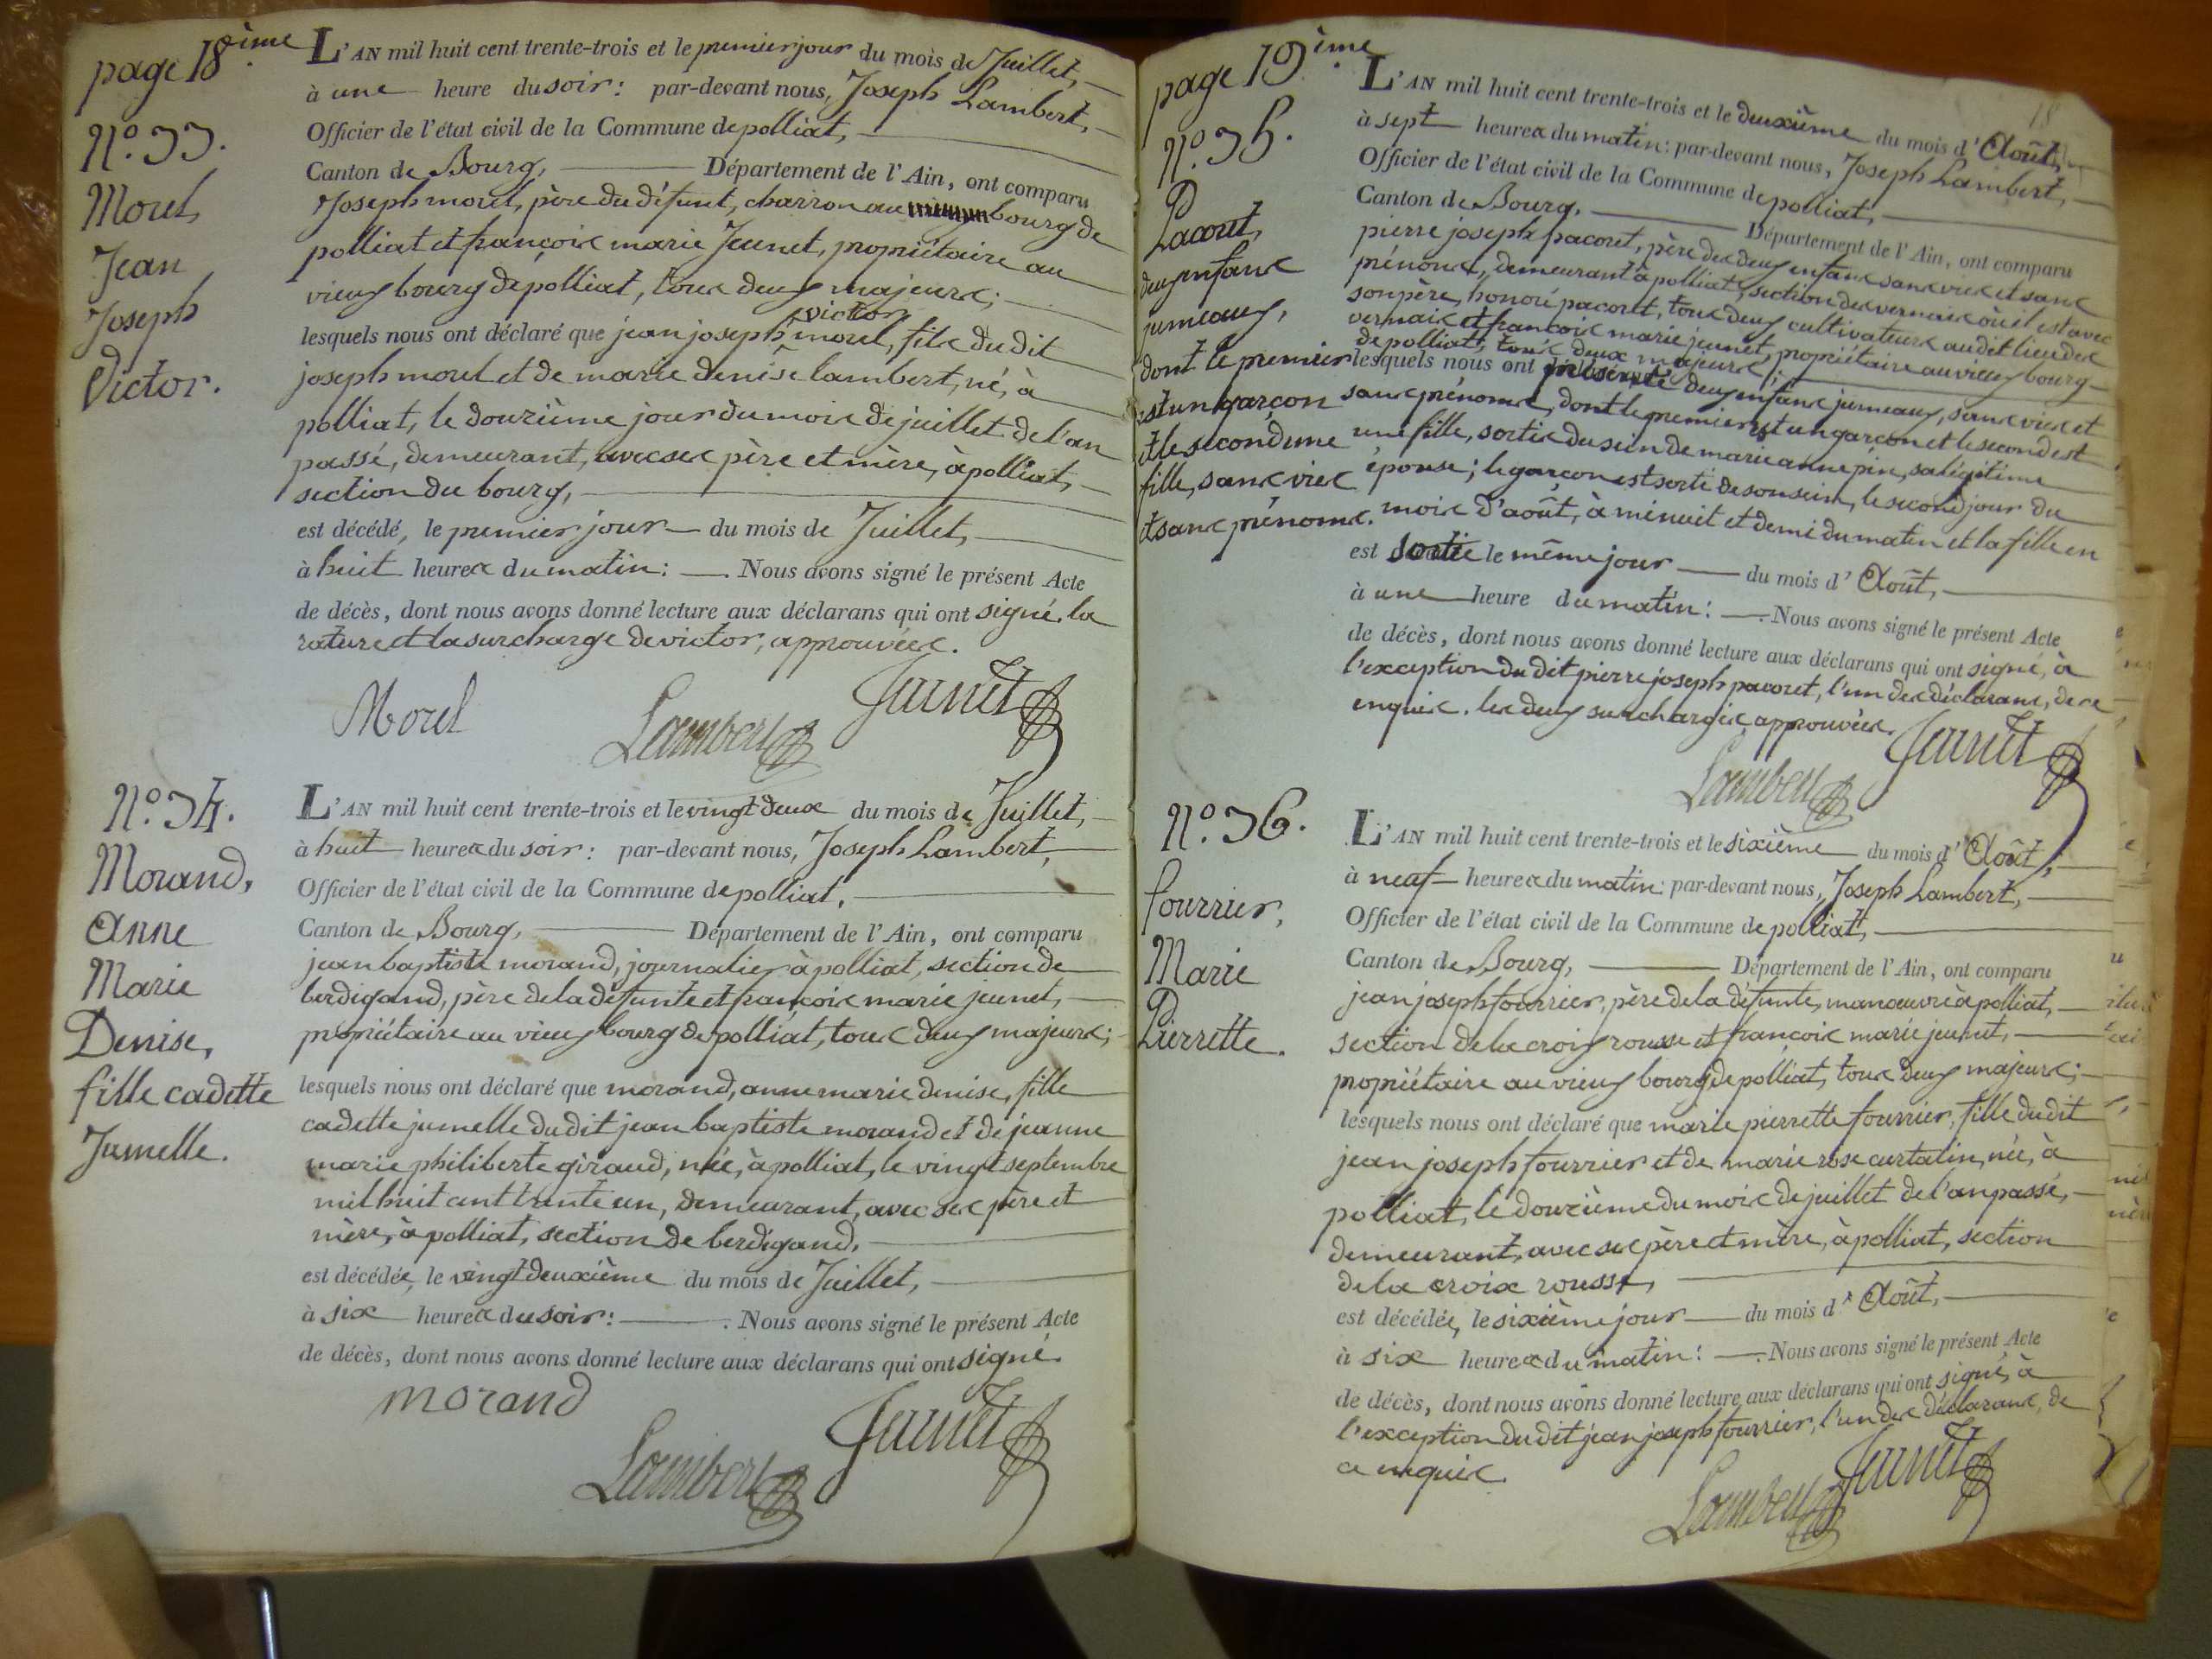 page 18.ème
N.° 33.
Morel,
Jean
Joseph
Victor.
L'AN mil huit cent trente-trois et le premier jour du mois de Juillet,
à une heure du soir : par-devant nous, Joseph Lambert,
Officier de l'état civil de la Commune de polliat,
Canton de Bourg, Département de l'Ain, ont comparu
Joseph morel, père du défunt, charron au bourg de
polliat et françois marie Jeunet, propriétaire au
vieux bourg de polliat, tous deux majeurs;
victor
lesquels nous ont déclaré que jean joseph morel, fils du dit
joseph morel et de marie denise lambert, né, à
polliat, le douzième jour du mois de juillet de l'an
passé, demeurant, avec ses père et mère, à polliat,
section du bourg,
est décédé, le premier jour du mois de Juillet,
à huit heures du matin : Nous avons signé le présent Acte
de décès, dont nous avons donné lecture aux déclarans qui ont signé. la
rature et la surcharge de victor, approuvées.
Morel
Lambert
Jeunet
N.° 34.
Morand,
Anne
Marie
Denise,
fille cadette
Jumelle.
L'AN mil huit cent trente-trois et le vingt deux du mois de Juillet,
à huit heures du soir : par-devant nous, Joseph Lambert,
Officier de l'état civil de la Commune de polliat,
Canton de Bourg, Département de l'Ain, ont comparu
jean baptiste morand, journalier à polliat, section de
berdigand, père de la défunte et françois marie jeunet,
propriétaire au vieux bourg de polliat, tous deux majeurs;
lesquels nous ont déclaré que morand, anne marie denise, fille
cadette jumelle du dit jean baptiste morand et de jeanne
marie philiberte giraud, née, à polliat, le vingt septembre
mil huit cent trente un, demeurant, avec ses père et
mère, à polliat, section de berdigand,
est décédée, le vingt deuxième du mois de Juillet,
à six heures du soir : Nous avons signé le présent Acte
de décès, dont nous avons donné lecture aux déclarans qui ont signé.
morand
Lambert
Jeunet
page 19.ème
18
N.° 35.
Pacoret,
deux enfans
jumeaux,
dont le premier
est un garçon
et le second une
fille, sans vies
et sans prénoms.
L'AN mil huit cent trente-trois et le deuxième du mois d'Août,
à sept heures du matin : par-devant nous, Joseph Lambert,
Officier de l'état civil de la Commune de polliat,
Canton de Bourg, Département de l'Ain, ont comparu
pierre joseph pacoret, père des deux enfans sans vies et sans
prénoms, demeurant à polliat, section des vernais où il est avec
son père, honoré pacoret, tous deux cultivateurs au dit lieu des
vernais et françois marie jeunet, propriétaire au vieux bourg
de polliat, tous deux majeurs;
lesquels nous ont présenté deux enfans jumeaux, sans vies et
sans prénoms, dont le premier est un garçon et le second est
une fille, sortis du sein de marie anne pin, sa légitime
épouse; le garçon est sorti de son sein, le second jour du
mois d'août, à minuit et demi du matin et la fille en
est sortie le même jour du mois d'Août,
à une heure du matin : Nous avons signé le présent Acte
de décès, dont nous avons donné lecture aux déclarans qui ont signé, à
l'exception du dit pierre joseph pacoret, l'un des déclarans, de ce
enquis. les deux surcharges approuvées.
Jeunet
Lambert
N.° 36.
fourrier,
Marie
Pierrette.
L'AN mil huit cent trente-trois et le sixième du mois d'Août,
à neuf heures du matin : par-devant nous, Joseph Lambert,
Officier de l'état civil de la Commune de polliat,
Canton de Bourg, Département de l'Ain, ont comparu
jean joseph fourrier, père de la défunte, manoeuvre à polliat,
section de la croix rousse et françois marie jeunet,
propriétaire au vieux bourg de polliat, tous deux majeurs;
lesquels nous ont déclaré que marie pierrette fourrier, fille du dit
jean joseph fourrier et de marie rose curtalin, née, à
polliat, le douzième du mois de juillet de l'an passé,
demeurant, avec ses père et mère, à polliat, section
de la croix rousse,
est décédée, le sixième jour du mois d'Août,
à six heures du matin : Nous avons signé le présent Acte
de décès, dont nous avons donné lecture aux déclarans qui ont signé, à
l'exception du dit jean joseph fourrier, l'un des déclarans, de
ce enquis.
Lambert
Jeunet